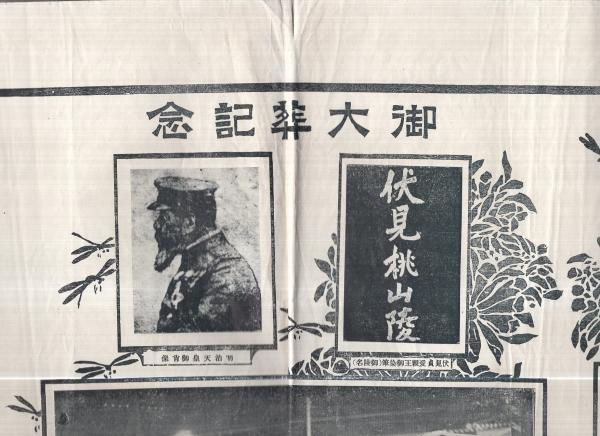 御大葬記念
伏見桃山陵
明治天皇御肖像
伏見貞愛親王御染筆(御陵名)